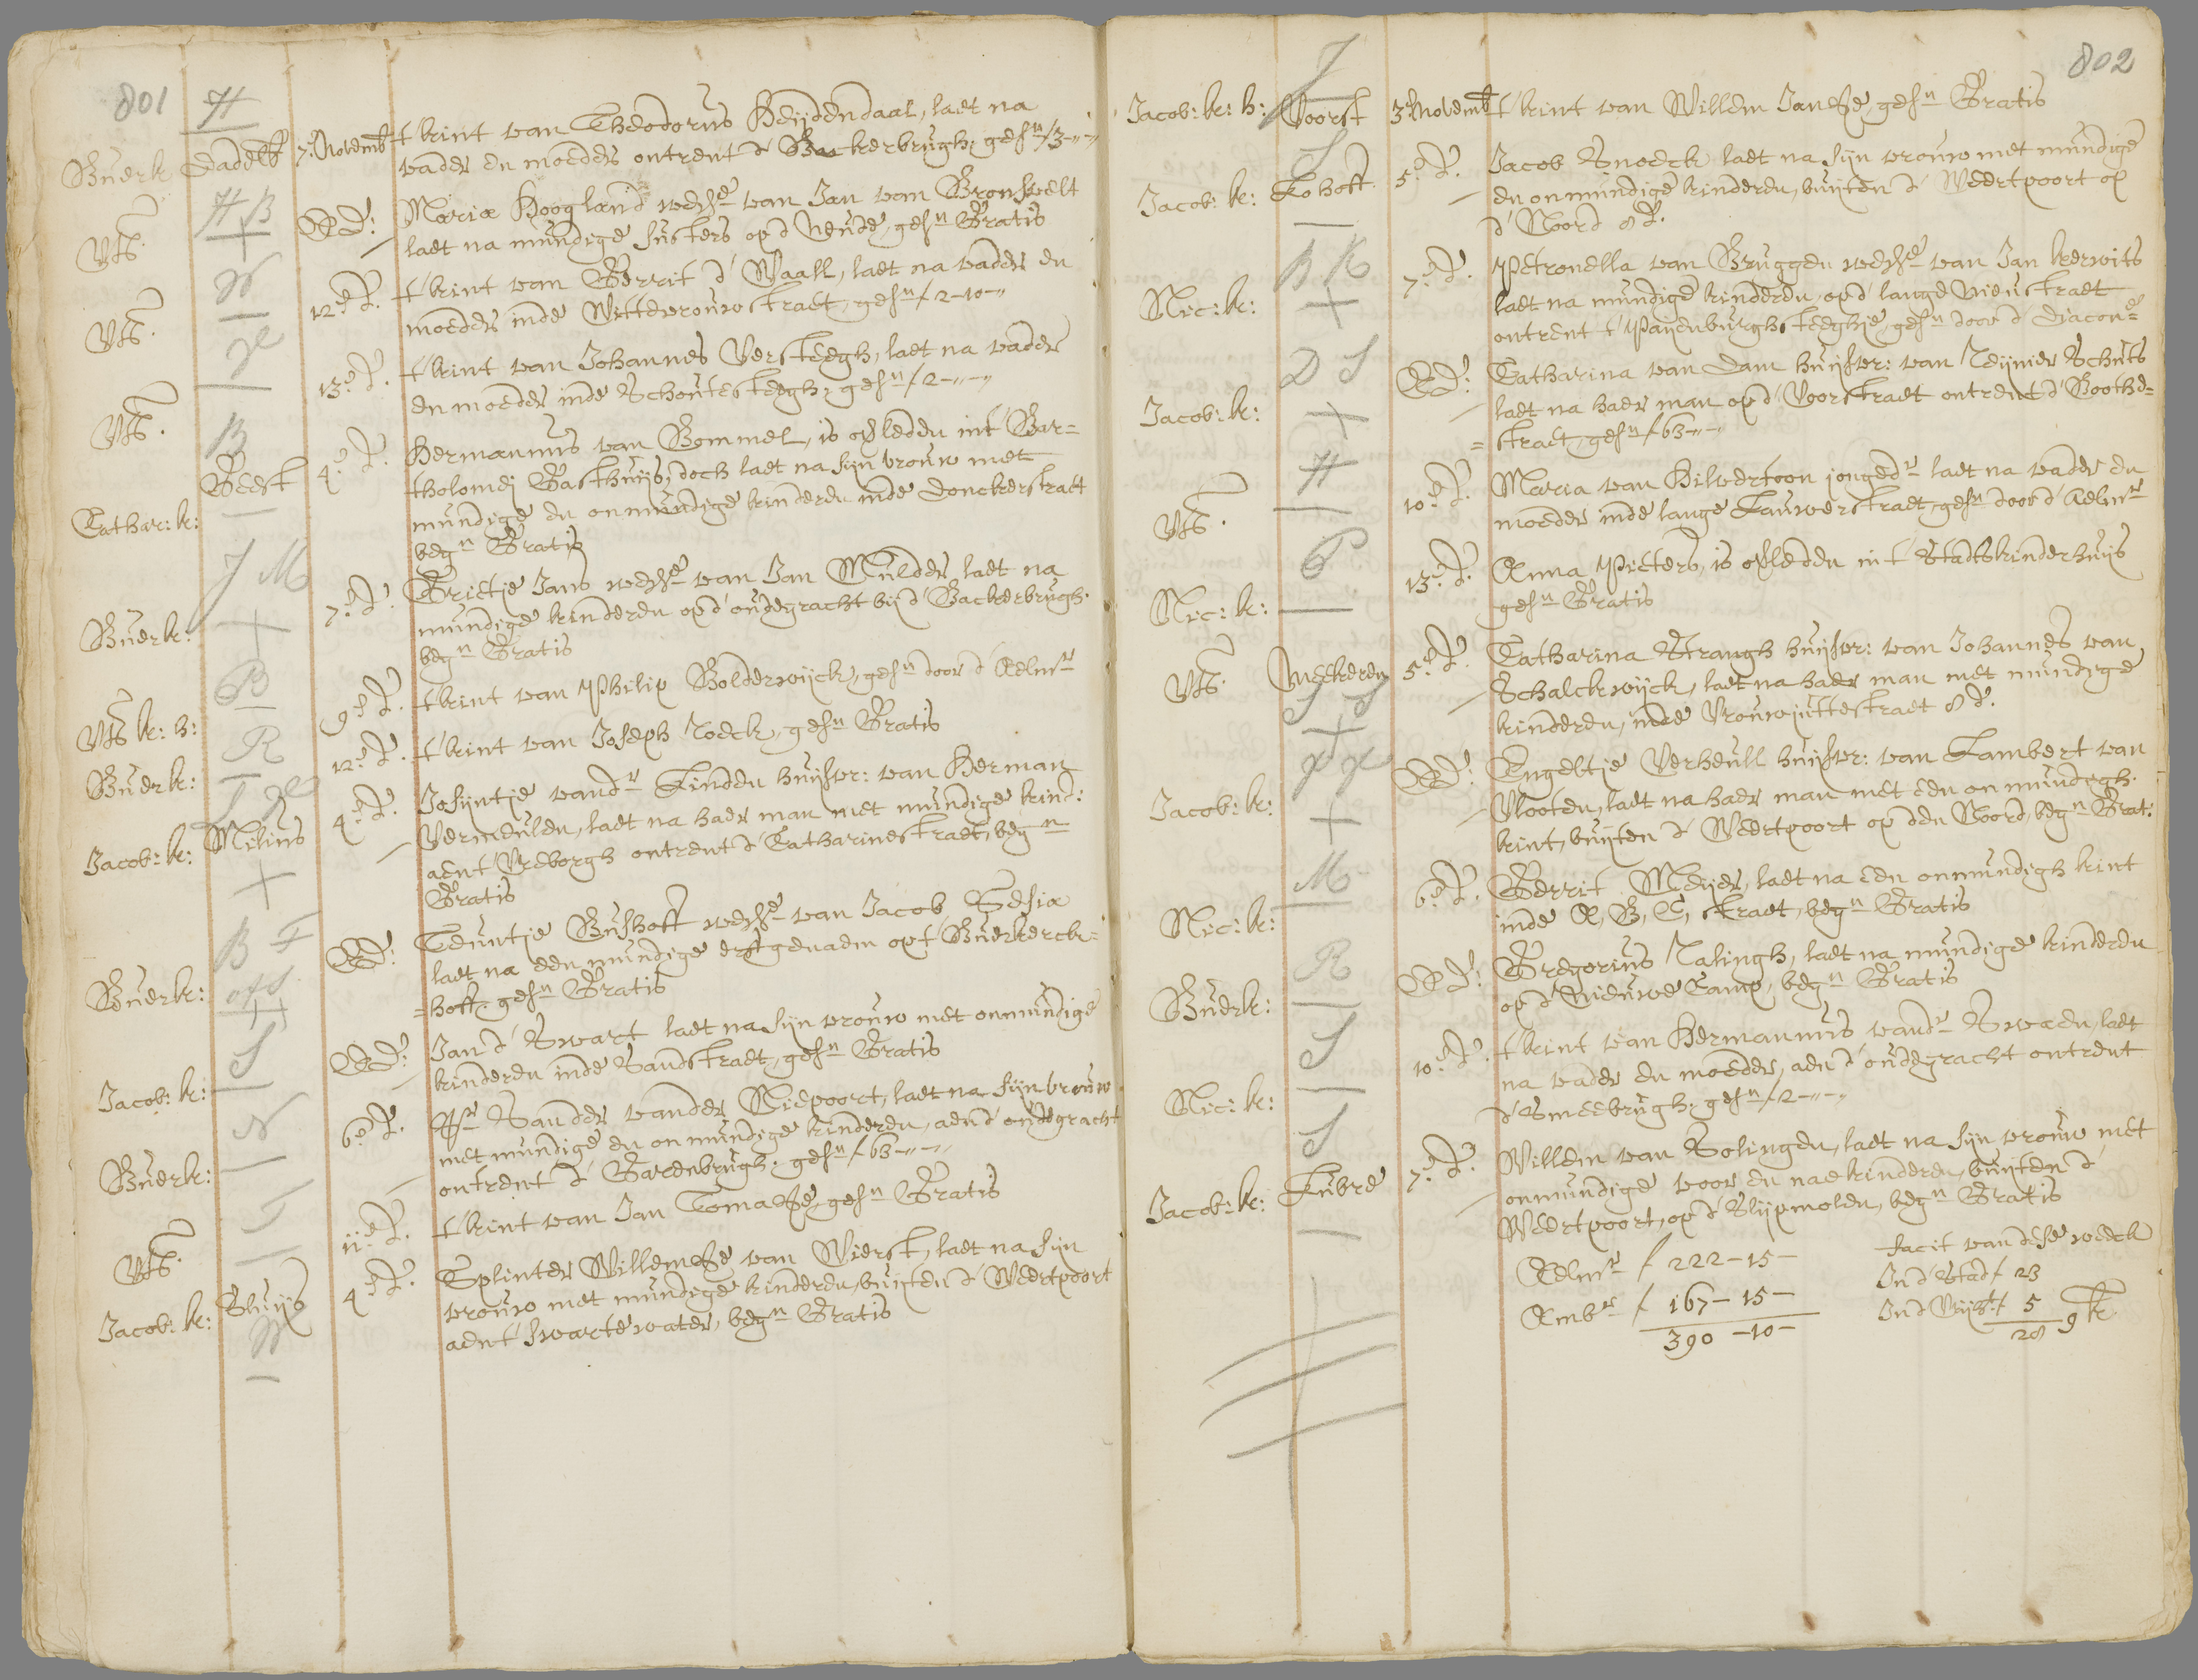 801
H
Buerk Dadelb 7e Novemb t kint van Theodorus Heijdendaal, laet na
vader en moeder ontrent d Backerbrugh, gesn f 3-"-"
HB
Vts. Ed: Maria Hoogland wedue van Jan van Bronswelt
laet na mundige susters op d Neude, gesn Gratis
W
Vts. 12e d. t kint van Gerrit d' Waall, laet na vader en
moeder inde Wittevrouwstraet, gesn f 2-10-"
Vts. 13e d. t kint van Johannes Versteegh, laet na vader
en moeder inde Schoutesteegh, gesn f 2-"-"
B
Cathar: k: Beest 4e d. Hermannus van Bommel, is overleden int Bar=
tholomej Gasthuijs, doch laet na sijn vrouw met
mundige en onmundige kinderen inde Donckerstraet
begn Gratis
J M
Buerk: 7e d. Grietje Jans wedue van Jan Mulder laet na
mundige kinderen op d' oudegracht bij d' Backerbrugh.
begn Gratis
B
Vts k: h: 9e d. t kint van Philip Bolderwijck, gesn door d' Aelmrs
R
Buerk: 12e d. t' kint van Joseph Roeck, gesn Gratis
Jacob: k: Milius 4e d. Josijntje vandr Linden huijsvr: van Herman
Vermeulen, laet na haer man met mundige kind:
aent Vreborgh ontrent d' Catharinestraet, begn
Gratis
B F
Buerk: ofS Ed: Teuntje Bushoff wedue van Jacob Sesia
laet na een mundige erffgenaem op t' Buerkerck=
=hoff, gesn Gratis
S
Jacob: k: Ed: Jan d' Swart laet na sijn vrouw met onmundige
kinderen inde Sandstraet, gesn Gratis
N
Buerk: 6e d. Hr Sander vander Niepoort, laet na sijn vrouw
met mundige en onmundige kinderen, aen d' oudegracht
ontrent d' Gaerdbrugh, gesn f 63-"-"
T
Vts. 11e d. t' kint van Jan Tomasse, gesn Gratis
Jacob: k: Sluijs 4e d. Splinter Willemse van Wierst, laet na sijn
vrouw met mundige kinderen, buijten d' Weertpoort
aent' swarte water, begn Gratis
802
J
Jacob: k: h: Voorst 3e Novemb t' kint van Willem Jansse, gesn Gratis
S
Jacob: k: Lohoff 5e d. Jacob Snoeck laet na sijn vrouw met mundige
en onmundige kinderen, buijten d' Weertpoort op
d' Noord 8 d.
B K
Nic: k: 7e d. Petronella van Bruggen wedue van Jan kerwits
laet na mundige kinderen, op d' lange Nieustraet
ontrent t' Paijenburghsteeghje, gesn door d' Diacone
D S
Jacob: k: Ed: Catharina van Dam huijsvr: van Reijnier Schuts
laet na haer man op d' Voorstraet ontrent d' Boothe=
=straet, gesn f 63-"-"
H
Vts. 10e d. Maria van Hilvertoon jongedr laet na vader en
moeder inde lange Lauwerstraet, gesn door d' Aelmrs
P
Nic: k: 13e d. Anna Pieters, is overleden int Stadtskinderhuijs
gesn Gratis
Vts. Meekeren 5e d. Catharina Strangh huijsvr: van Johannes van
S S Schalckwijck, laet na haer man met mundige
kinderen, inde Vrouwjuttestraet 8 d.
Jacob: k: Ed: Engeltje Verheull huijsvr: van Lambert van
Vlooten, laet na haer man met een onmundigh
kint, buijten d' Weertpoort op den Noord, begn Grat:
M
Nic: k: 6e d. Gerrit Meijer, laet na een onmundigh kint
inde A, B, C, straet, begn Gratis
R
Buerk: Ed: Gregorius Ralingh, laet na mundige kinderen
op d' Nieuwe Camp, begn Gratis
S
Nic: k: 10e d. t kint van Hermannus vandr Swaen, laet
na vader en moeder, aen d' oudegracht ontrent
d' Smeebrugh, gesn f 2-"-"
S
Jacob: k: Lubre 7e d. Willem van Solingen, laet na sijn vrouw met
onmundige voor en nae kinderen, buijten d'
Weertpoort, op d' Slijpmolen, begn Gratis
Aelmrs f 222-15- facit van dese weeck
In d' Stadt 23
Ambrs f 167-15- In d' Vrijht 5
390-10- 28 gk